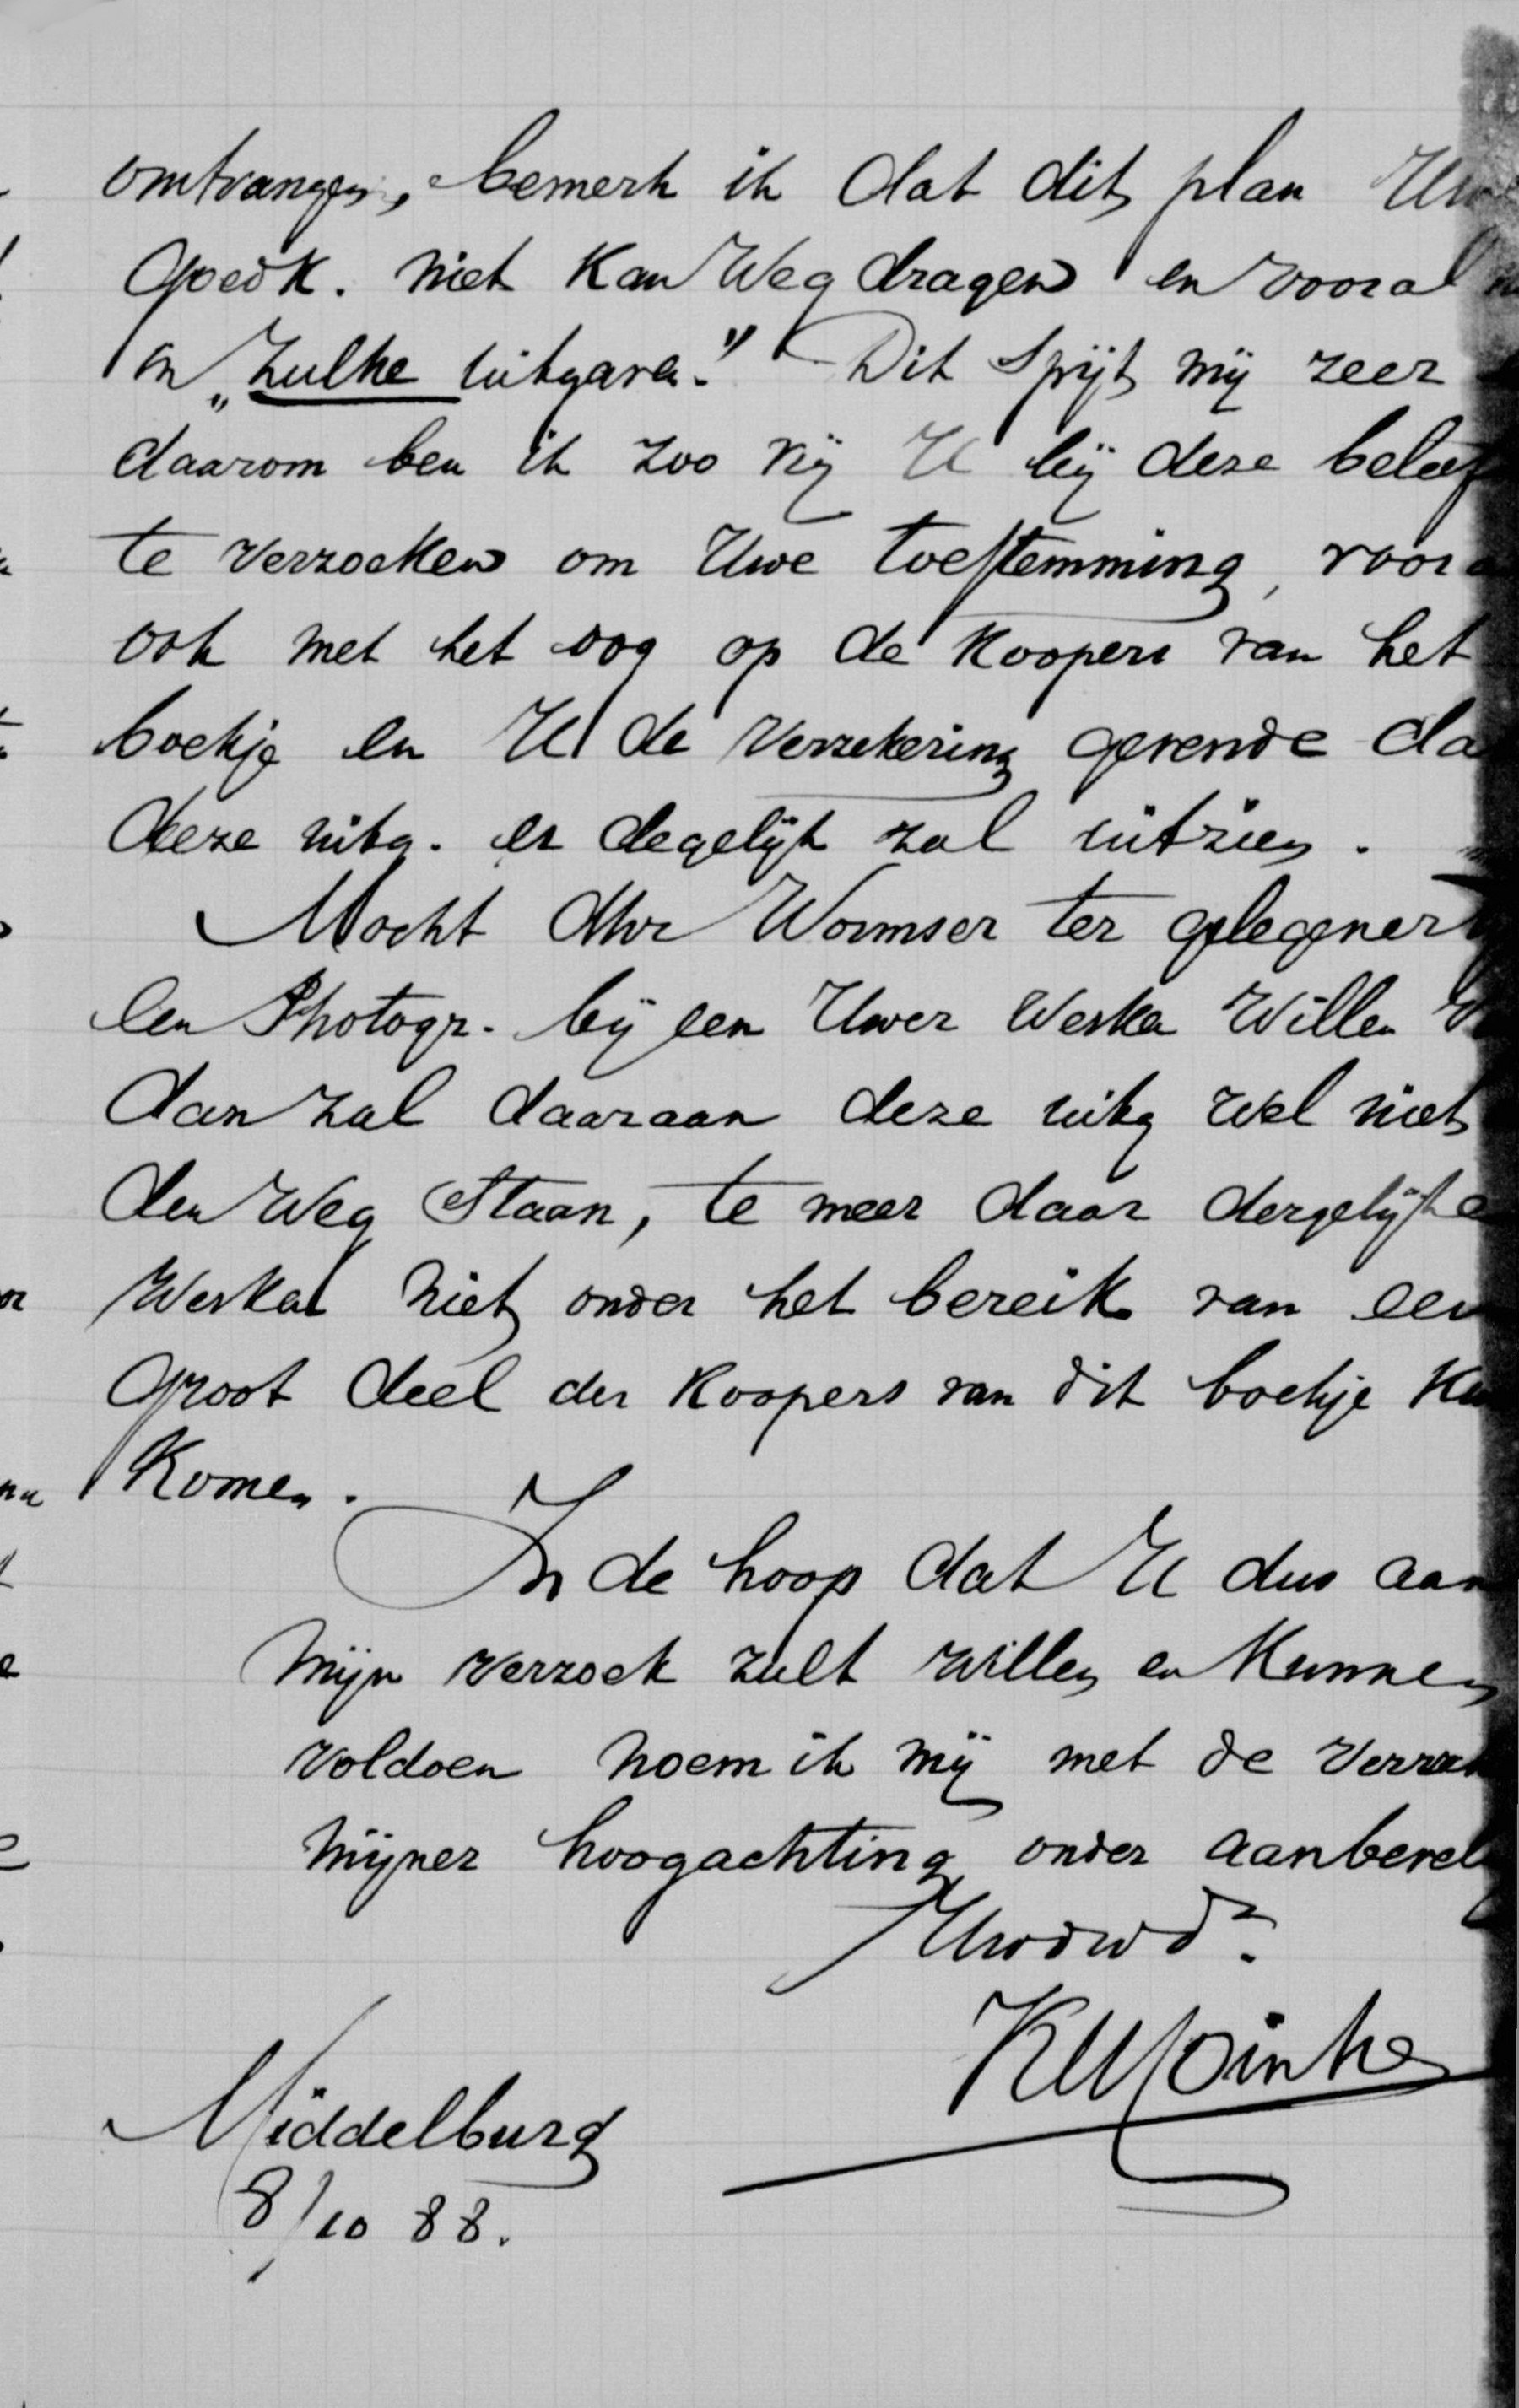 omtvangen, bemerk ik dat dit plan Uwe
Goedk. niet kan Weg dragen en vooral
in „Zulke uitgaven." Dit Spijt mij zeer
daarom ben ik zoo vrij U bij deze beleef
te verzoeken om Uwe toestemming, voora
ook met het oog op de Koopers van het
boekje en U de Verzekering gevende da
deze uitg. er degelijk zal uitzien.
Mocht dhr Wormser ter gelegener
een Photogr. bij een Uwer Werken Willen
dan zal daaraan deze uitg wel niet
den Weg Staan, te meer daar dergelijke
Werken niet onder het bereik van een
Groot deel der Koopers van dit boekje Ku
Komen.
In de hoop dat U dus aan
mijn verzoek zult willen en Kunnen
voldoen noem ik mij met de Verzek
mijner hoogachting onder aanbevel
Uwdwdr.
Middelburg
8/10 88.